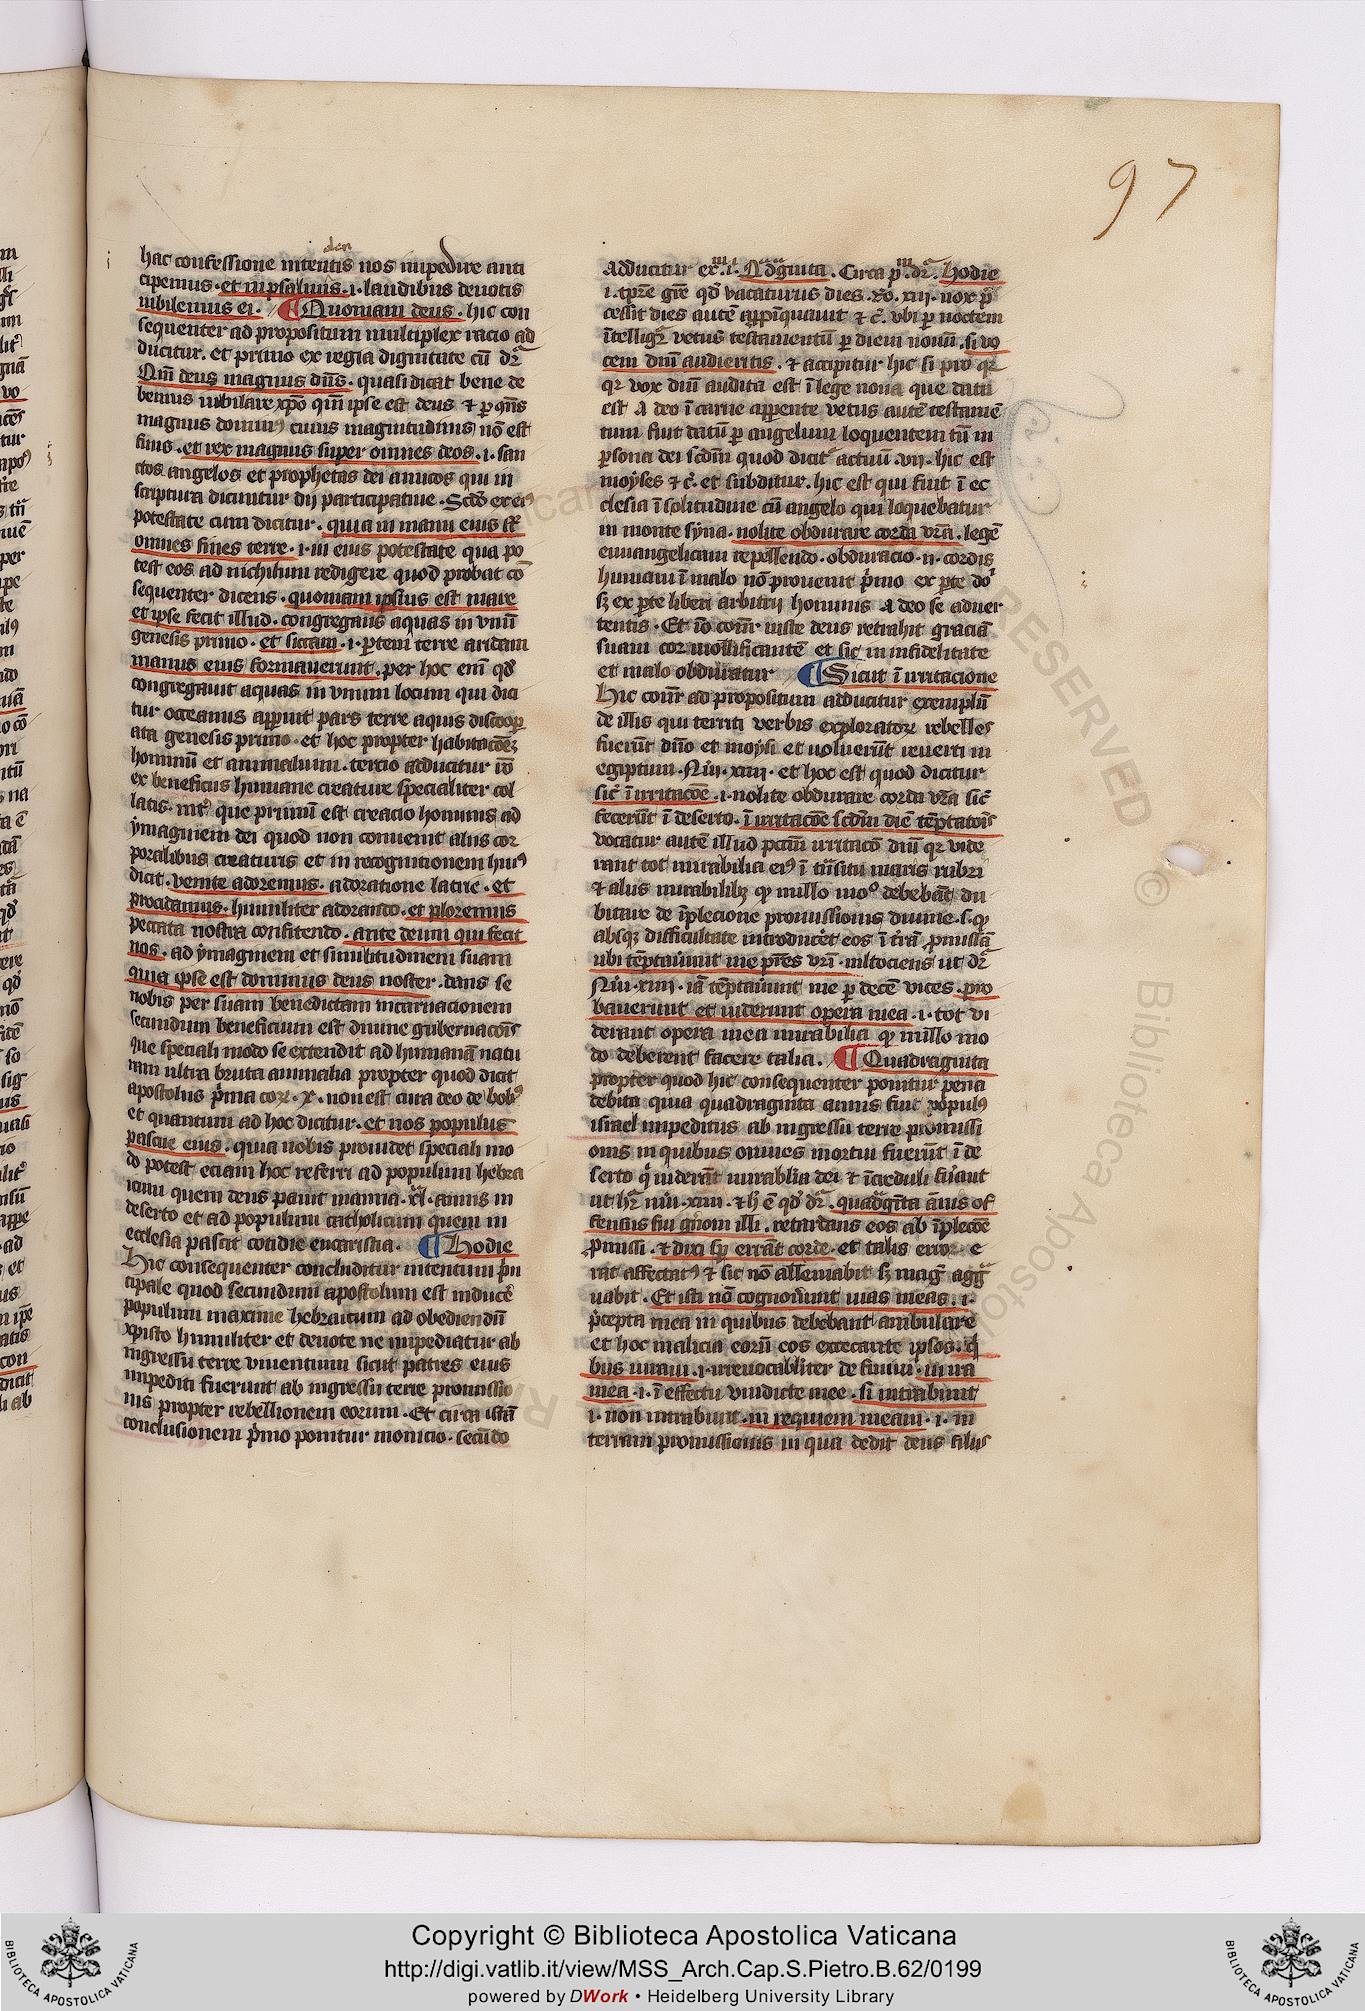 97
hac confessione intentis nos impedire anti
cipemus · et in psalmis · i · laudibus deuotis
iubilemus ei · ¶ Quoniam deus · hic con
sequenter ad propositum multiplex racio ad
ducitur · et primo ex regia dignitate cū dr̄
Qm̄ deus magnus dn̄s · quasi dicat bene de
bemus iubilare xp̄o qm̄ ipse est deus ⁊ ꝑ 
magnus dominus cuius magnitudinis nō est
finis · et rex magnus super omnes deos · i · san
ctos angelos et prophetas dei amicos qui in
scriptura dicuntur dii participatiue · Scd̄o ex eiꝰ
potestate cum dicitur · quia in manu eius st̄
omnes fines terre · i · in eius potestate qua po
test eos ad nichilum redigere quod probat cō
sequenter dicens · quoniam ipsius est mare
et ipse fecit illud · congregans aquas in vnū
genesis primo · et siccam · i · ꝑtem terre aridam
manus eius formauerunt · per hoc em̄ qd̄
congregauit aquas in vnum locum qui dici
tur oceanus apparuit pars terre aquis discoop
ata genesis primo · et hoc propter habitacōeꝫ
hominū et animalium · tercio adducitur rō
ex beneficiis humane creature specialiter col
latis · int̕ que primū est creacio hominis ad
ymaginem dei quod non conuenit aliis cor
poralibus creaturis et in recognitionem huiꝰ
dicit · venite adoremus · adoratione latrie · et
procidamus · humiliter adorando · et ploremus
peccata nostra confitendo · ante deum qui fecit
nos · ad ymaginem et similitudinem suam
quia ipse est dominus deus noster · dans se
nobis per suam benedictam incarnacionem
secundum beneficium est diuine gubernacōis
que speciali modo se extendit ad humanā natu
ram ultra bruta animalia propter quod dicit
apostolus p̄ma coꝝ · x · non est cura deo de bobꝰ
et quantum ad hoc dicitur · et nos populus
pascue eius · quia nobis prouidet speciali mo
do potest eciam hoc referri ad populum hebra
icum quem deus pauit manna · xl · annis in
deserto et ad populum catholicum quem in
ecclesia pascit cotidie eucaristia · ¶ Hodie
Hic consequenter concluditur intentum p̄n
cipale quod secundum apostolum est inducē
populum maxime hebraicum ad obediendū
xpisto humiliter et deuote ne impediatur ab
ingressu terre viuentium sicut patres eius
impediti fuerunt ab ingressu terre promissio
nis propter rebellionem eorum · Et circa istā
conclusionem p̄mo ponitur monicio · secūdo
adducitur exm̄ · i · Qd̄ginta · Circa pm̄ dr̄ · Hodie
i · tpr̄e gr̄e qd̄ vacaturus dies · Ro · xiii · nox p̄
cessit dies autē appinquauit ⁊ c̄ · vbi ꝑ noctem
ītelligr̄ vetus testamentū ꝑ diem nouū · si vo
cem dni audieritis · ⁊ accipitur hic si pro qr̄
qr vox dni audita est ī lege noua que data
est a deo ī carne apparente vetus autē testamē
tum fuit datū ꝑ angelum loquentem tn̄ in
ꝑsona dei scd̄m quod dicit̕ actuū · vii · hic est
moyses ⁊ c̄ · et subditur · hic est qui fuit ī ec
clesia ī solitudine cū angelo qui loquebatur
in monte syna · nolite obdurare corda vr̄a · legē
euuangelicam repellendo · obduracio · n · cordis
humani ī malo nō prouenit p̄mo ex ꝑte do̕
sꝫ ex ꝑte liberi arbitrii hominis a deo se auer
tentis · Et iō  iuste deus retrahit graciā
suam cor mollificantē et sic in infidelitate
et malo obduratur ¶ Sicut ī irritacione
Hic  ad propositum adducitur exemplū
de illis qui territi verbis exploratoꝝ rebelles
fuerūt dn̄o et moysi et uoluerūt reuerti in
egiptum · Nūi · xiiii · et hoc est quod dicitur
sic̄ ī irritacōe · i · nolite obdurare corda vr̄a sic̄
fecerūt ī deserto · ī irritacōe scd̄m diē tēptatoīs
vocatur autē illud pctm̄ irritacō dni qr vide
rant tot mirabilia eiꝰ ī trāsitu maris rubri
⁊ aliis mirabilibꝫ ꝙ nullo moᵒ debebāt du
bitare de īplecione promissionis diuine · s · ꝙ
absqꝫ difficultate introducēt eos ī trā p̄missā
ubi tēptauūnt me pr̄es vr̄i · mltociens ut dr̄
Nūi · xiiii · iā tēptauūnt me ꝑ decē vices · pro
bauerunt et uiderunt opera mea · i · tot vi
derant opera mea mirabilia ꝙ nullo mo
do deberent facere talia · ¶ Quadraginta
propter quod hic consequenter ponitur pena
debita quia quadraginta annis fuit populꝰ
israel impeditus ab ingressu terre promissi
onis in quibus omnes mortui fuerūt ī de
serto q̄ uiderāt mirabilia dei ⁊ īcreduli fūant
ut hr̄ nūi · xiiii · ⁊ h̄ ē qd̄ dr̄ · quadgīta ānis of
fensus fui gn̄om illi · retardans eos ab īplecōe
p̄missi · ⁊ dixi sp̄ errāt corde · et talis error e
rat affectatꝰ ⁊ sic nō alleuiabit sꝫ mag̕ agg̕
uabit · Et isti nō cognouūnt uias meas · i ·
p̄cepta mea in quibus debebant ambulare
et hoc malicia eorū eos excecante ipsos · qi
bus iuraui · i · irreuocabiliter diffiniui · in ira
mea · i · ī effectu uindicte mee · si intrabunt
i · non intrabunt · in requiem meam · i · in
terram promissionis in qua dedit deus filiis
RESERVED © Biblioteca Apostolica
Copyright © Biblioteca Apostolica Vaticana
http://digi.vatlib.it/view/MSS_Arch.Cap.S.Pietro.B.62/0199
powered by DWork • Heidelberg University Library
BIBLIOTECA APOSTOLICA VATICANA
BIBLIOTECA APOSTOLICA VATICANA